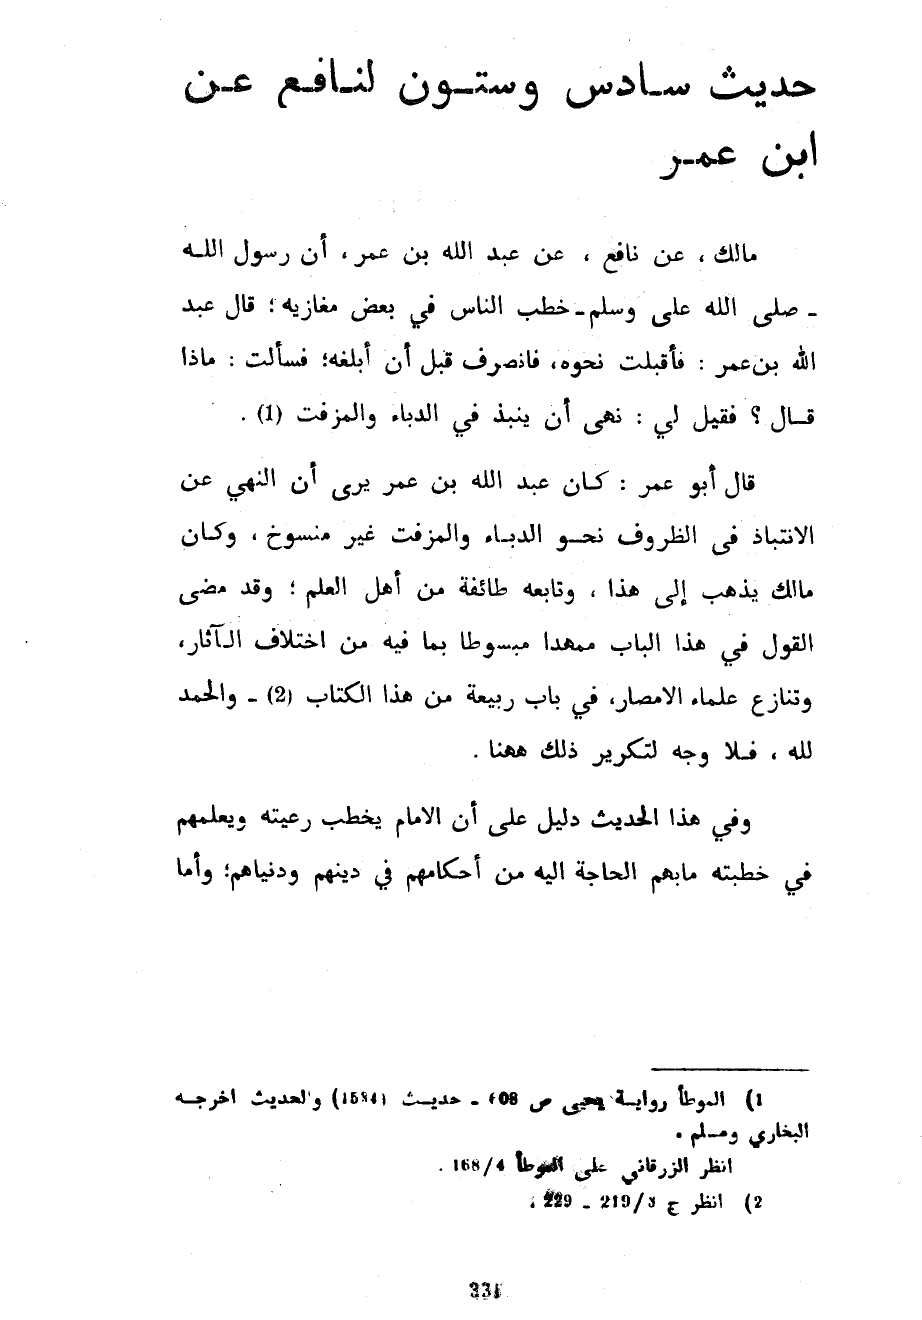 حديث سادس وستون لنافع عن
ابن عمر
مالك ، عن نافع ، عن عبد الله بن عمر ، أن رسول الله
ـ صلى الله على وسلم ـ خطب الناس في بعض مغازيه ؛ قال عبد
الله بن عمر : فأقبلت نحوه، فانصرف قبل أن أبلغه؛ فسألت : ماذا
قال ؟ فقيل لي : نهى أن ينبذ في الدباء والمزفت (1) .
قال أبو عمر : كان عبد الله بن عمر يرى أن النهي عن
الانتباذ في الظروف نحو الدباء والمزفت غير منسوخ ، وكان
مالك يذهب إلى هذا ، وتابعه طائفة من أهل العلم ؛ وقد مضى
القول في هذا الباب ممهدا مبسوطا بما فيه من اختلاف الآثار،
وتنازع علماء الامصار، في باب ربيعة من هذا الكتاب (2) ـ والحمد
لله ، فلا وجه لتكرير ذلك ههنا .
وفي هذا الحديث دليل على أن الامام يخطب رعيته ويعلمهم
في خطبته مابهم الحاجة اليه من أحكامهم في دينهم ودنياهم؛ وأما
1) الموطأ رواية يحيى ص ـ حديث والحديث اخرجه
البخاري ومسلم .
انظر الزرقاني على الموطأ 168/4 .
2) انظر ج 219/3 ـ 229 .